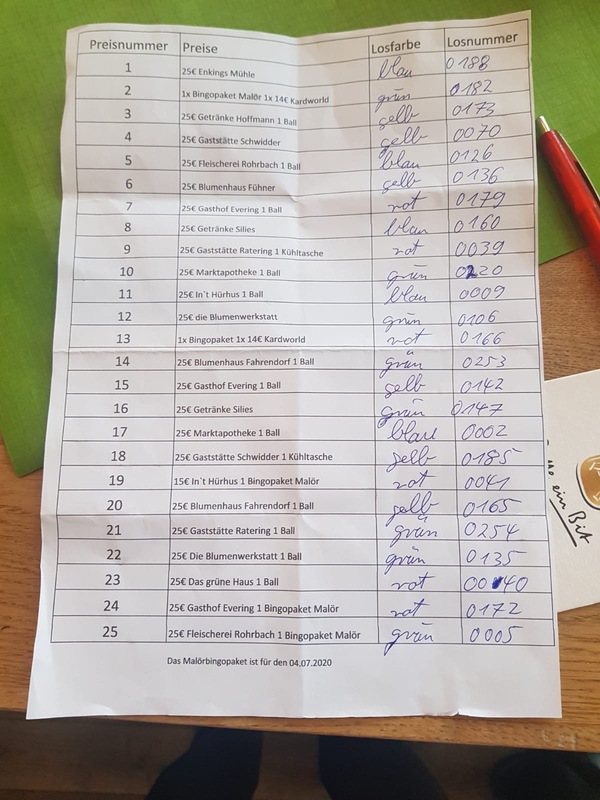 Preisnummer Preise Losfarbe Losnummer
1 25€ Enkings Mühle blau 0188
2 1x Bingopaket Malör 1x 14€ Kardworld grün 0182
3 25€ Getränke Hoffmann 1 Ball gelb 0173
4 25€ Gaststätte Schwidder gelb 0070
5 25€ Fleischerei Rohrbach 1 Ball blau 0126
6 25€ Blumenhaus Fühner gelb 0136
7 25€ Gasthof Evering 1 Ball rot 0179
8 25€ Getränke Silies blau 0160
9 25€ Gaststätte Ratering 1 Kühltasche rot 0039
10 25€ Marktapotheke 1 Ball grün 0220
11 25€ In`t Hürhus 1 Ball blau 0009
12 25€ die Blumenwerkstatt grün 0106
13 1x Bingopaket 1x 14€ Kardworld rot 0166
14 25€ Blumenhaus Fahrendorf 1 Ball grün 0253
15 25€ Gasthof Evering 1 Ball gelb 0142
16 25€ Getränke Silies grün 0147
17 25€ Marktapotheke 1 Ball blau 0002
18 25€ Gaststätte Schwidder 1 Kühltasche gelb 0185
19 15€ In`t Hürhus 1 Bingopaket Malör rot 0041
20 25€ Blumenhaus Fahrendorf 1 Ball gelb 0165
21 25€ Gaststätte Ratering 1 Ball grün 0254
22 25€ Die Blumenwerkstatt 1 Ball grün 0135
23 25€ Das grüne Haus 1 Ball rot 0040
24 25€ Gasthof Evering 1 Bingopaket Malör rot 0172
25 25€ Fleischerei Rohrbach 1 Bingopaket Malör grün 0005
Das Malörbingopaket ist für den 04.07.2020
ein Bit